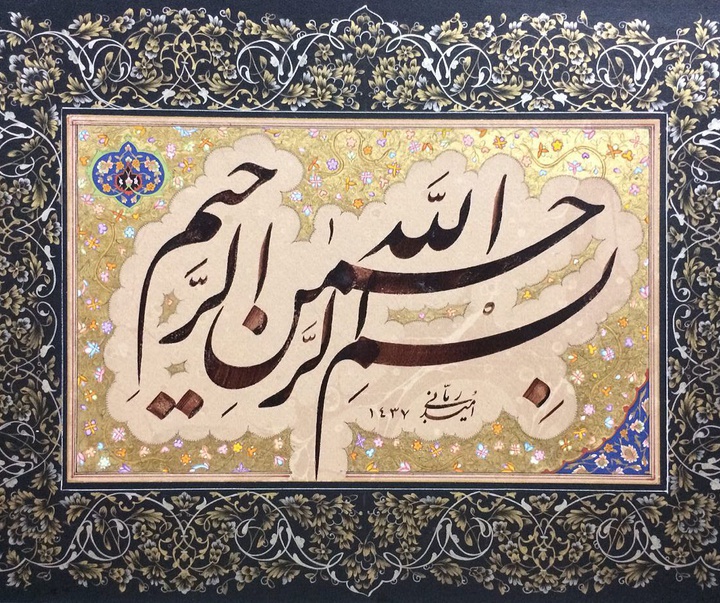 بِسْمِ اللَّه الرَّحْمٰنِ الرَّحیمِ
امید ربّانی
۱۴۳۷